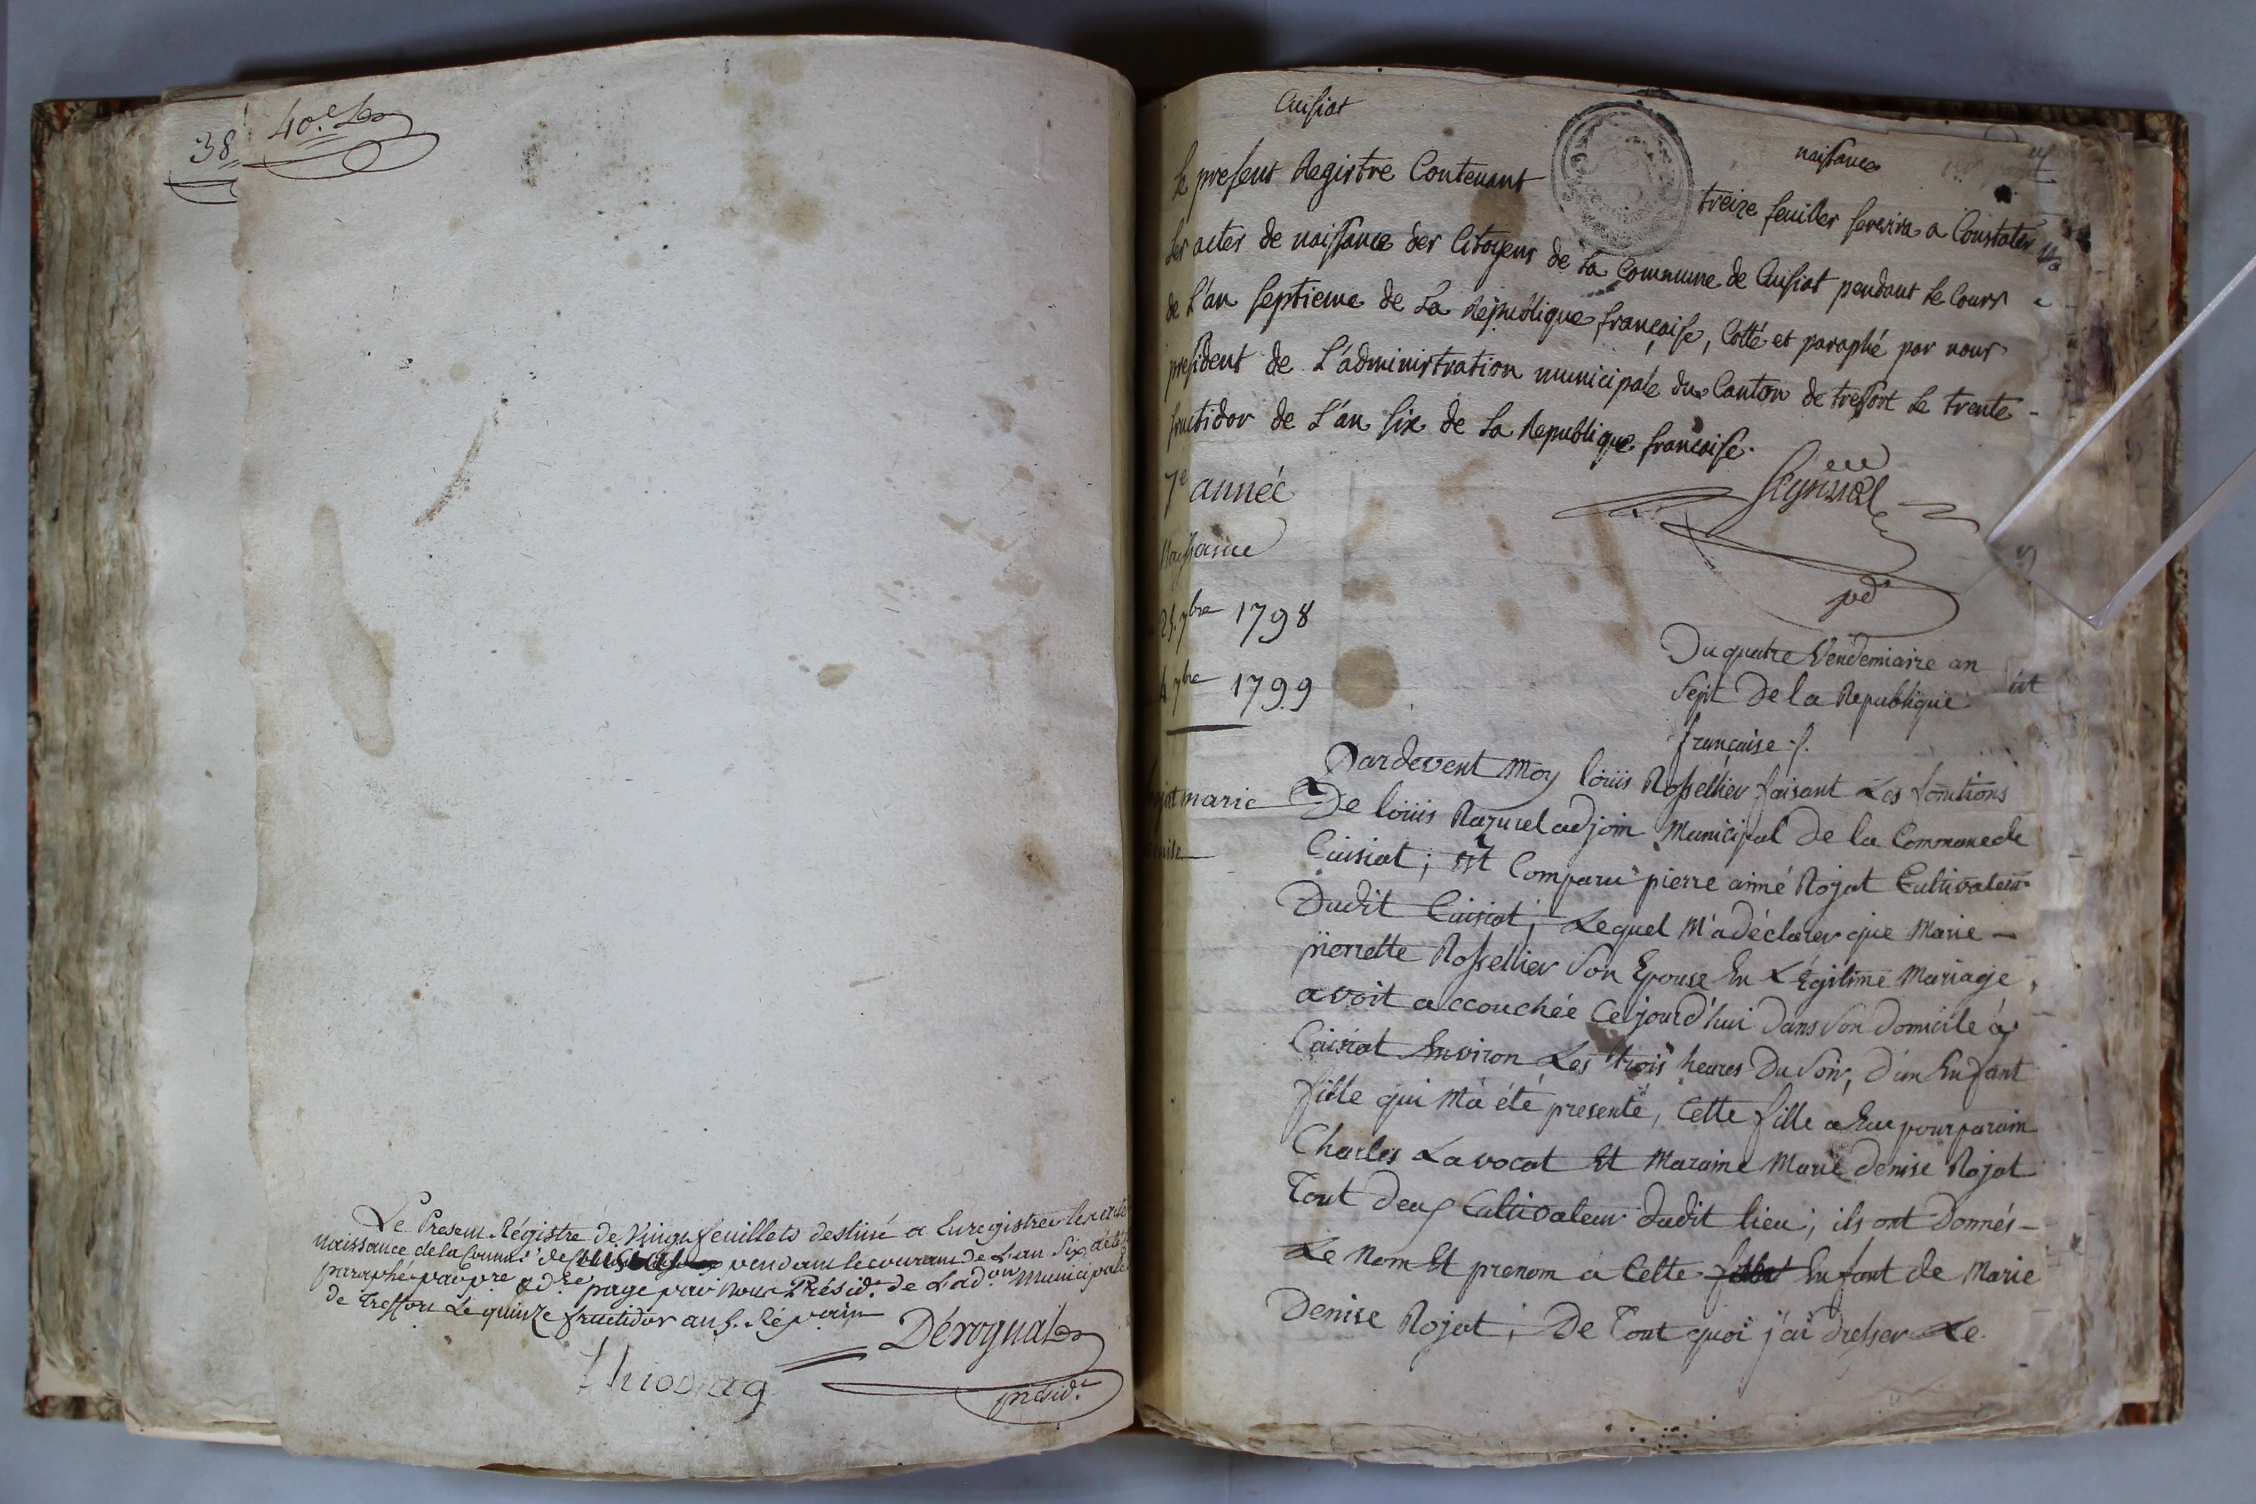 38
40.e
Le Present Régistre de Vingt feuillets destiné a Enregistrer les acte
naissance de la Commu.e de pendant le courant de L'an Six, a été
paraphé par p.re & d.re page par Nous Présid.t de L'ad.on Municipale
de Treffort Le quinze fructidor an 5. Répcain
Dérognat
présid.t
Cuisiat
naissance
le present Registre Contenant treize feuilles servira a Constater
les actes de naissance des Citoyens de la Commune de Cuisiat pendant le Cours
de l'an septieme de la Republique française, Cotté et paraphé par nous
president de l'administration municipale du Canton de treffort le trente
fructidor de l'an six de la Republique française.
7e année
Naissance
pdt
25. 7bre 1798
7bre 1799
Du quatre Vendemiaire an
Sept De la Republique
française.
Pardevent Moy louis Rossellier faisant Les fonctions
marie
De louis Razurel adjoin Municipal De la Commune de
Cuisiat; Est Comparu pierre aimé Rojat Cultivateur
Dudit Cuisiat; Lequel M'a déclarer que Marie
pierrette Rossellier Son Epouse En Légitime Mariage
avoit accouchée Cejourd'hui Dans Son Domicile à
Cuisiat Environ Les trois heures Du Soir, D'un Enfant
fille qui M'a été presenté, Cette fille a Eue pour parain
Charles Lavocat Et Maraine Marie Denise Rojat
Tout deux Cultivateur dudit lieu; ils ont Donnés
Le Nom Et prenom a Cette Enfant de Marie
Denise Rojat; De Tout quoi j'ai dresser Le